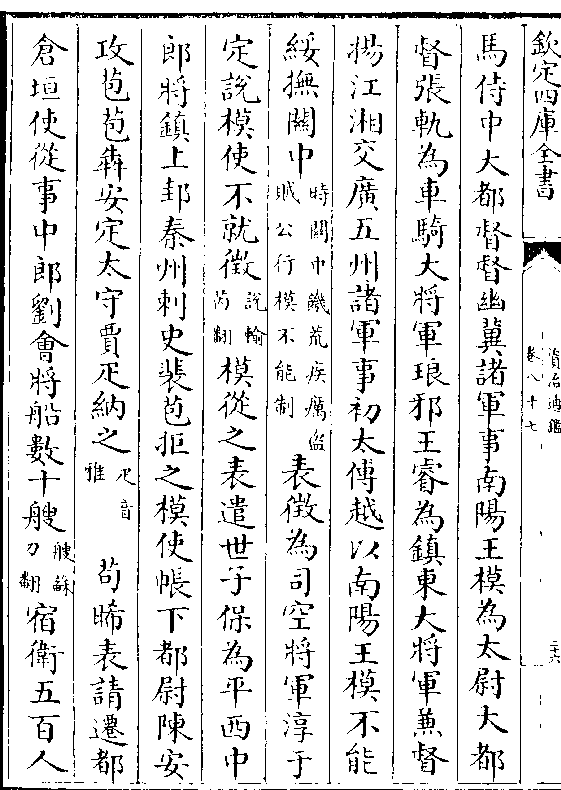 欽定四庫全書
資治通鑑
卷八十七
三六
馬侍中大都督督幽冀諸軍事南陽王模為太尉大都
督張軌為車騎大將軍琅邪王睿為鎮東大將軍兼督
揚江湘交廣五州諸軍事初太傅越以南陽王模不能
綏撫關中時關中饑荒疾癘盜賊公行模不能制表徵為司空將軍淳于
定說模使不就徵說輸芮翻模從之表遣世子保為平西中
郎將鎮上邽秦州刺史裴苞拒之模使帳下都尉陳安
攻苞苞犇安定太守賈疋納之疋音雅 苟晞表請遷都
倉垣使從事中郎劉會將船數十艘艘蘇刀翻宿衛五百人